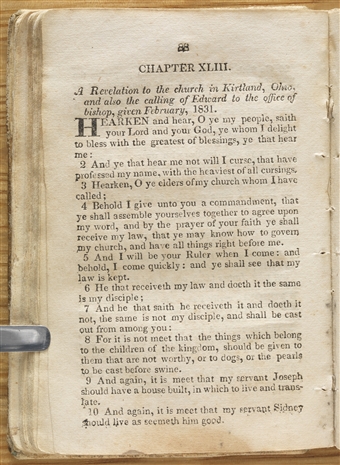 88
CHAPTER XLIII.
A Revelation to the church in Kirtland, Ohio,
and also the calling of Edward to the office of
bishop, given February, 1831.
HEARKEN and hear, O ye my people, saith
your Lord and your God, ye whom I delight
to bless with the greatest of blessings, ye that hear
me:
2 And ye that hear me not will I curse, that have
professed my name, with the heaviest of all cursings.
3 Hearken, O ye elders of my church whom I have
called;
4 Behold I give unto you a commandment, that
ye shall assemble yourselves together to agree upon
my word, and by the prayer of your faith ye shall
receive my law, that ye may know how to govern
my church, and have all things right before me.
5 And I will be your Ruler when I come: and
behold, I come quickly: and ye shall see that my
law is kept.
6 He that receiveth my law and doeth it the same
is my disciple;
7 And he that saith he receiveth it and doeth it
not, the same is not my disciple, and shall be cast
out from among you:
8 For it is not meet that the things which belong
to the children of the kingdom, should be given to
them that are not worthy, or to dogs, or the pearls
to be cast before swine.
9 And again, it is meet that my servant Joseph
should have a house built, in which to live and trans-
late.
10 And again, it is meet that my servant Sidney
should live as seemeth him good.